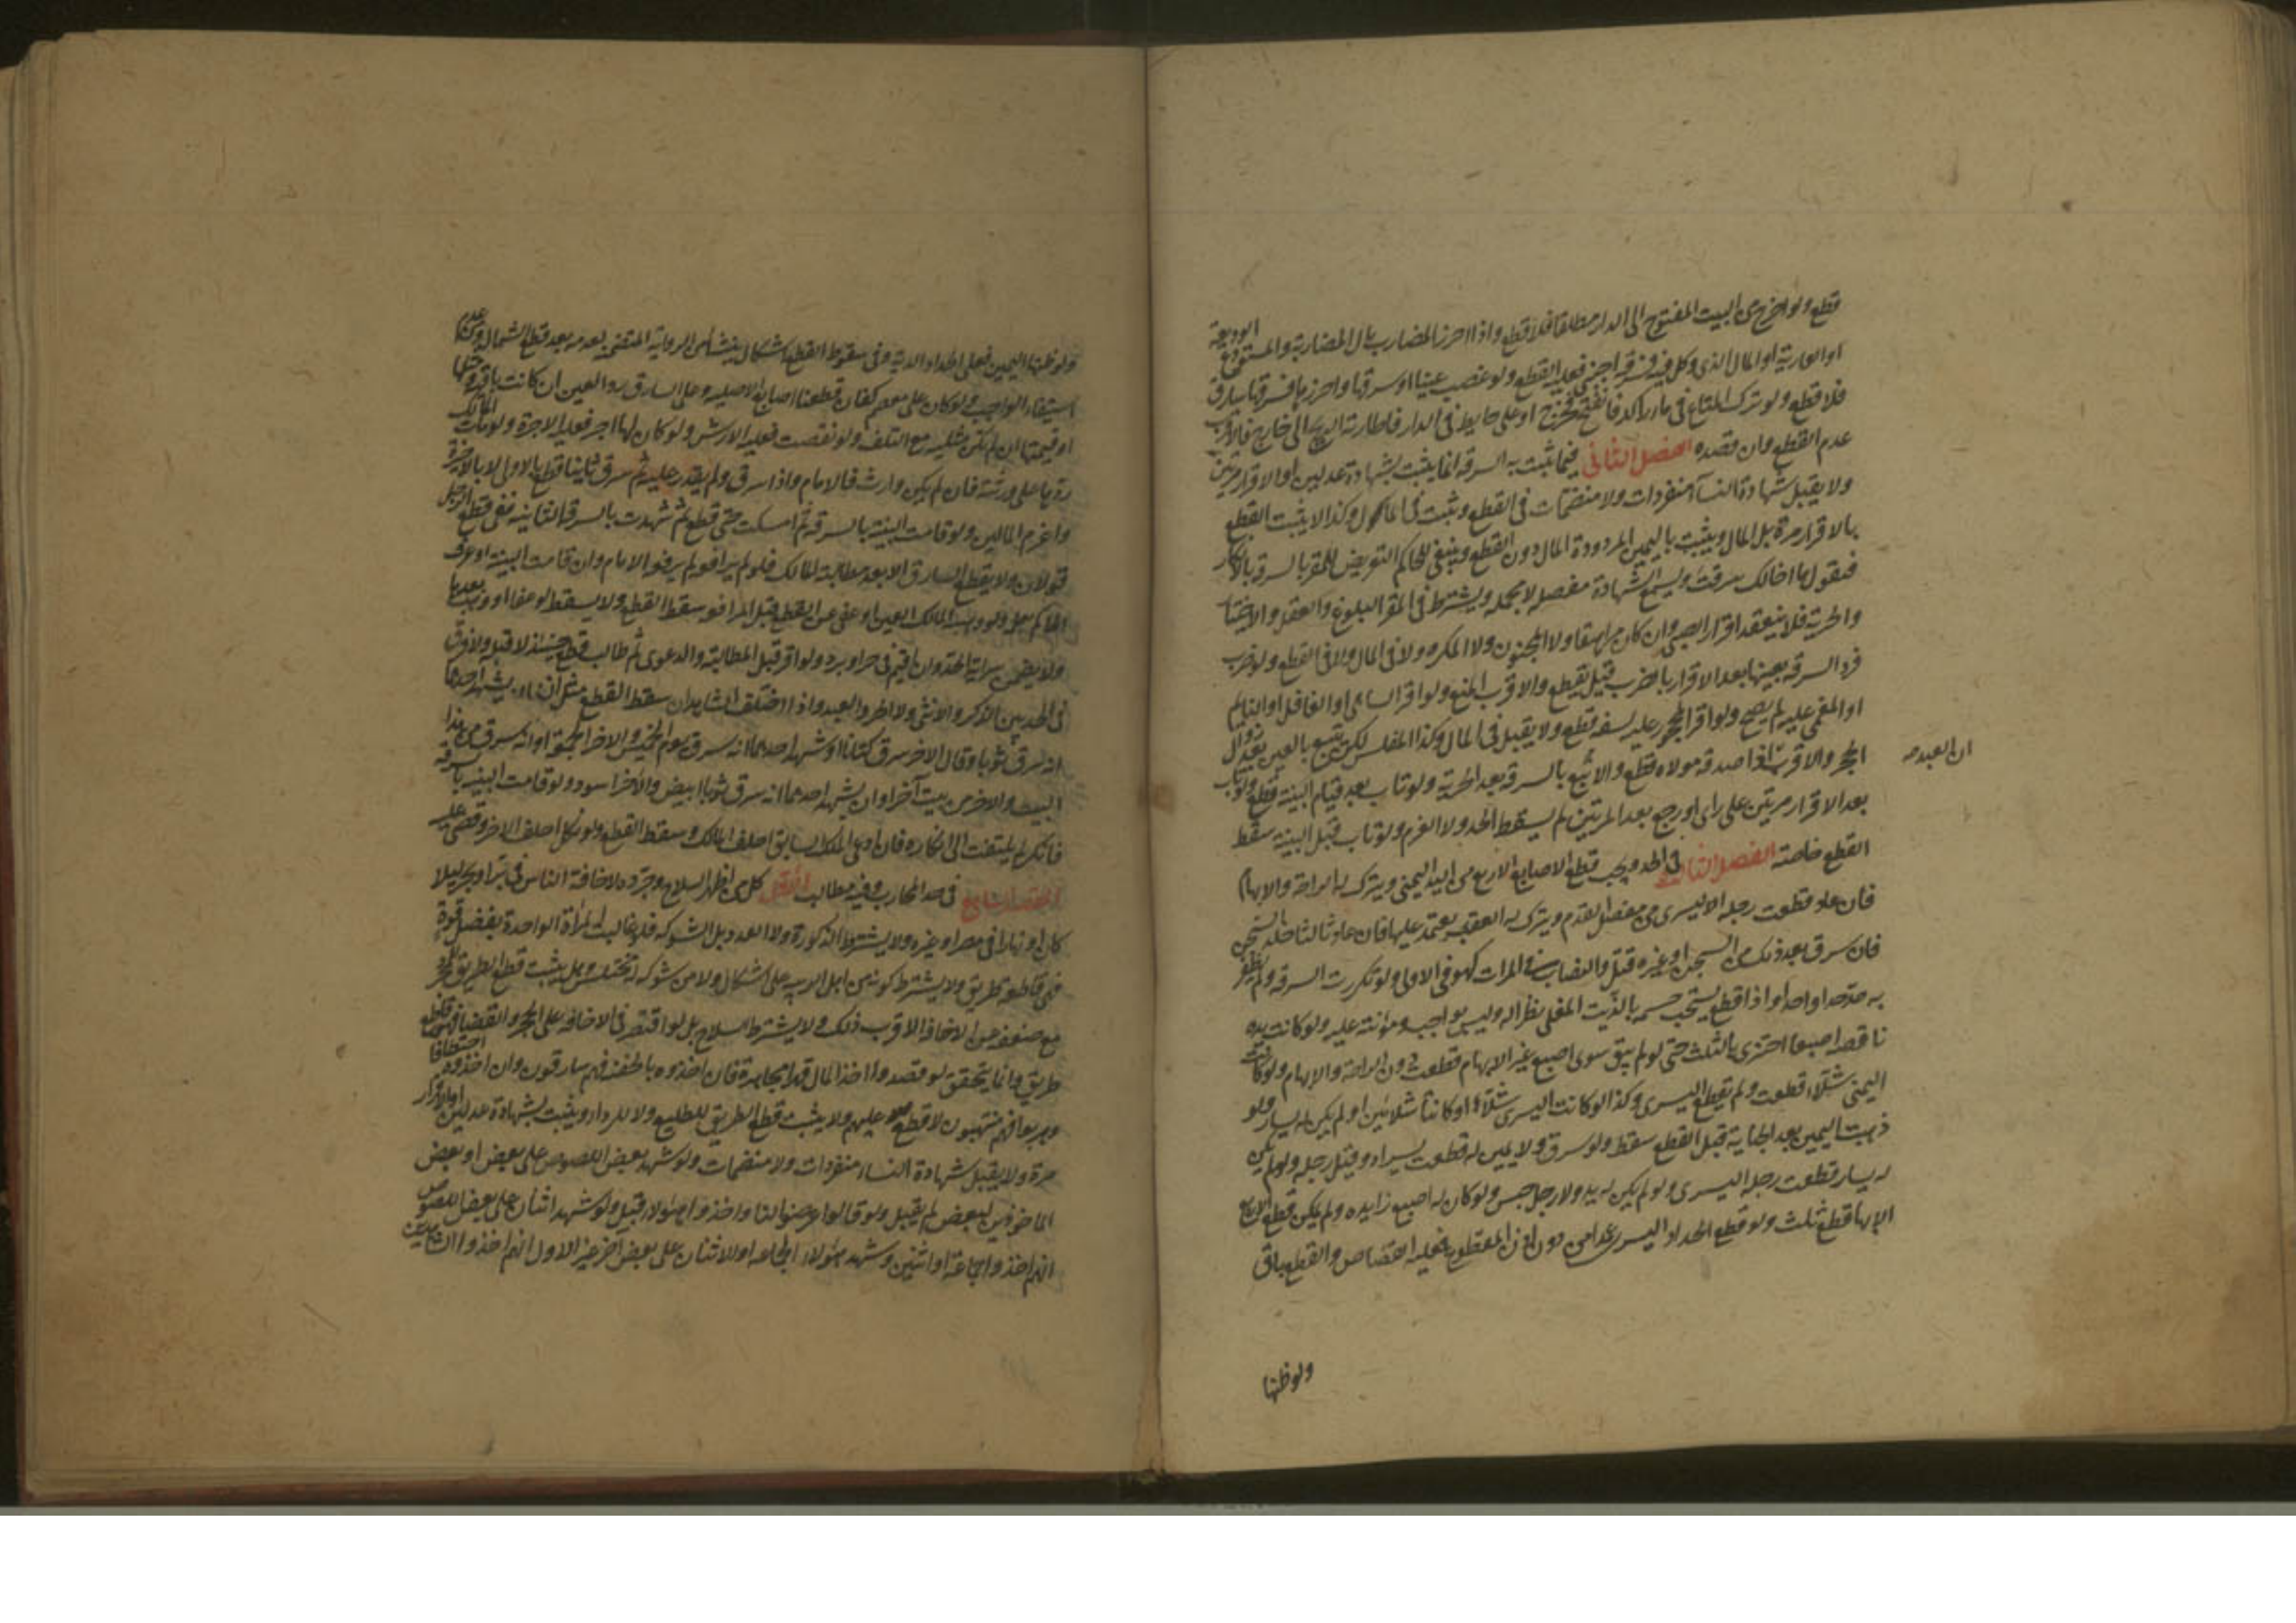 قطع ولو اخرج من البيت المفتوح الى الدار مطلقا فلا قطع واذا احرز المضارب مال المضاربة والمستودع الوديعة
او العارية او المال الذى وكل فيه فسرقه اجنبى فعليه القطع ولو غصب عينا او سرقها واحرزها فسرقها سارق
فلا قطع ولو ترك المتاع فى ماء راكد فانفتح فخرج او على حايط فى الدار فاطارته الريح الى خارج فالاقرب
عدم القطع وان قصده الفصل الثانى فيما تثبت به السرقه انما يثبت بشهادة عدلين او الاقرار مرتين
ولا يقبل شهادة النسآء منفردات ولا منضمات فى القطع وتثبت فى المال وكذا لا يثبت القطع
بالاقرار مرة بل المال ويثبت باليمين المردودة المال دون القطع وينبغى للحاكم التعريض للمقر بالسرقه بالانكار
فيقول ما اخالك سرقت ويسمع الشهادة مفصله لا مجمله ويشترط فى المقر البلوغ والعقل والاختيار
والحرية فلا ينعقد اقرار الصبى وان كان مراهقا ولا المجنون ولا المكره ولا فى المال ولا فى القطع ولو ضرب
فرد السرقه بعينها بعد الاقرار بالضرب قيل يقطع والاقرب المنع ولو اقر الساهى او الغافل او النايم
او المغمى عليه لم يصح ولو اقر المحجور عليه لسفه قطع ولا يقبل فى المال وكذا المفلس لكن يتبع بالعين بعد زوال
الحجر والاقرب اذا صدقه مولاه قطع والا تبع بالسرقه بعد الحرية ولو تاب بعد قيام البينه قطع ولو تاب
ان العبد
بعد الاقرار مرتين على راى او رجع بعد المرتين لم يسقط الحد ولا الغرم ولو تاب قبل البينه سقط
القطع خاصة الفصل الثالث فى الحد ويجب قطع الاصابع الاربع من اليد اليمنى ويترك له الراحة والابهام
فان عاد قطعت رجله اليسرى من مفصل القدم ويترك له العقب يعتمد عليها فان عاد ثالثا خلد السجن
فان سرق بعد ذلك من السجن او غيره قتل والنصاب فى المرات كهو فى الاولى ولو تكررت السرقه ولم يظفر
به حد حدا واحدا واذا قطع يستحب حسمه بالزيت المغلى نظرا له وليس بواجب ومؤنته عليه ولو كانت يده
ناقصه اصبعا اجتزى بالثلث حتى لو لم يبق سوى اصبع غير الابهام قطعت دون الراحة والابهام ولو كانت
اليمنى شلاء قطعت ولم تقطع اليسرى وكذا لو كانت اليسرى شلاء او كانتا شلائين او لم يكن له يسار ولو
ذهبت اليمين بعد الجناية قبل القطع سقط ولو سرق ولا يمين له قطعت يسراه وقيل رجله ولو لم يكن
له يسار قطعت رجله اليسرى ولو لم يكن له يد ولا رجل حبس ولو كان له اصبع زايده ولم يكن قطع الاربع
الا بها قطع ثلث ولو قطع الحداد اليسرى عمدا من دون اذن المقطوع فعليه القصاص والقطع باق
ولو ظنها
ولو ظنها اليمين فعلى الحداد الدية وفى سقوط القطع اشكال ينشأ من الرواية المتضمنه لعدمه بعد قطع الشمال ومن عدم
استيفاء الواجب ولو كان على معصم كفان قطعنا اصابع الاصليه وعلى السارق رد العين ان كانت باقيه ومثلها
او قيمتها ان لم تكن مثليه مع التلف ولو نقصت فعليه الارش ولو كان لها اجر فعليه الاجرة ولو مات المالك
ردها على ورثته فان لم يكن وارث فالامام واذا سرق ولم يقدر عليه ثم سرق ثانيا قطع بالاولى لا بالاخيرة
واغرم المالين ولو قامت البينة بالسرقه ثم امسكت حتى قطع ثم شهدت بالسرقه الثانيه ففى قطع الرجل
قولان ولا يقطع السارق الا بعد مطالبة المالك فلو لم يرافعه لم يرفعه الامام وان قامت البينه او عرف
الحاكم بعلمه ولو وهبه المالك العين او عفى عن القطع قبل المرافعه سقط القطع ولا يسقط لو عفا او وهب بعدها
ولا يضمن سراية الحد وان اقيم فى حر او برد ولو اقر قبل المطالبة والدعوى ثم طالب قطع حينئذ لا قبله ولا فرق
فى الحد بين الذكر والانثى ولا الحر والعبد واذا اختلف الشاهدان سقط القطع مثل ان يشهد احدهما
انه سرق ثوبا وقال الاخر سرق كتانا او شهد احدهما انه سرق يوم الخميس والاخر الجمعة او انه سرق من هذا
البيت والاخر من بيت آخر او ان يشهد احدهما انه سرق ثوبا ابيض والآخر اسود ولو قامت البينه بالسرقه
فانكر لم يلتفت الى انكاره فان ادعى الملك السابق احلف المالك وسقط القطع ولو نكل احلف الاخر وقضى عليه
المقصد السابع فى حد المحارب وفيه مطالب الاول كل من اظهر السلاح وجرده لاخافة الناس فى بر او بحر ليلا
كان او نهارا فى مصر او غيره ولا يشترط الذكورة ولا العدد بل الشوكه فلو غالبت المرأة الواحدة بفضل قوة
فهى قاطعه طريق ولا يشترط كونه من اهل الريبه على اشكال ولا من شوكه له مختلس وهل يثبت قطع الطريق للمجرد
مع ضعفه عن الاخافه الاقرب ذلك ولا يشترط السلاح بل لو اقتصر فى الاخافه على الحجر والعصا فهو قاطع
طريق وانما يتحقق لو قصدوا اخذ المال قهرا مجاهرة فان اخذوه بالخفيه فهم سارقون وان اخذوه اختطافا
وهربوا فهم منتهبون لا قطع عليهم ولا يثبت قطع الطريق للطليع ولا للردء ويثبت بشهادة عدلين او الاقرار
مرة ولا يقبل شهادة النساء منفردات ولا منضمات ولو شهد بعض اللصوص على بعض او بعض
الماخوذين لبعض لم يقبل ولو قالوا عرضوا لنا واخذوا هؤلاء قبل ولو شهد اثنان على بعض اللصوص
انهم اخذوا جماعة او اثنين وشهد هؤلاء الجماعه او الاثنان على بعض آخر غير الاول انهم اخذوا الشاهدين